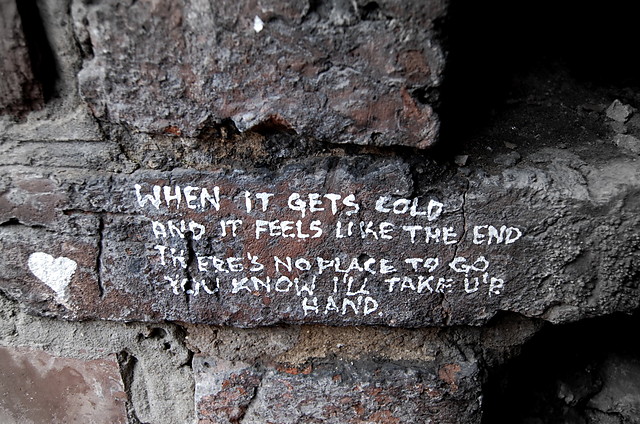 WHEN IT GETS COLD
AND IT FEELS LIKE THE END
THERE'S NO PLACE TO GO
YOU KNOW I'LL TAKE U'R
HAND.